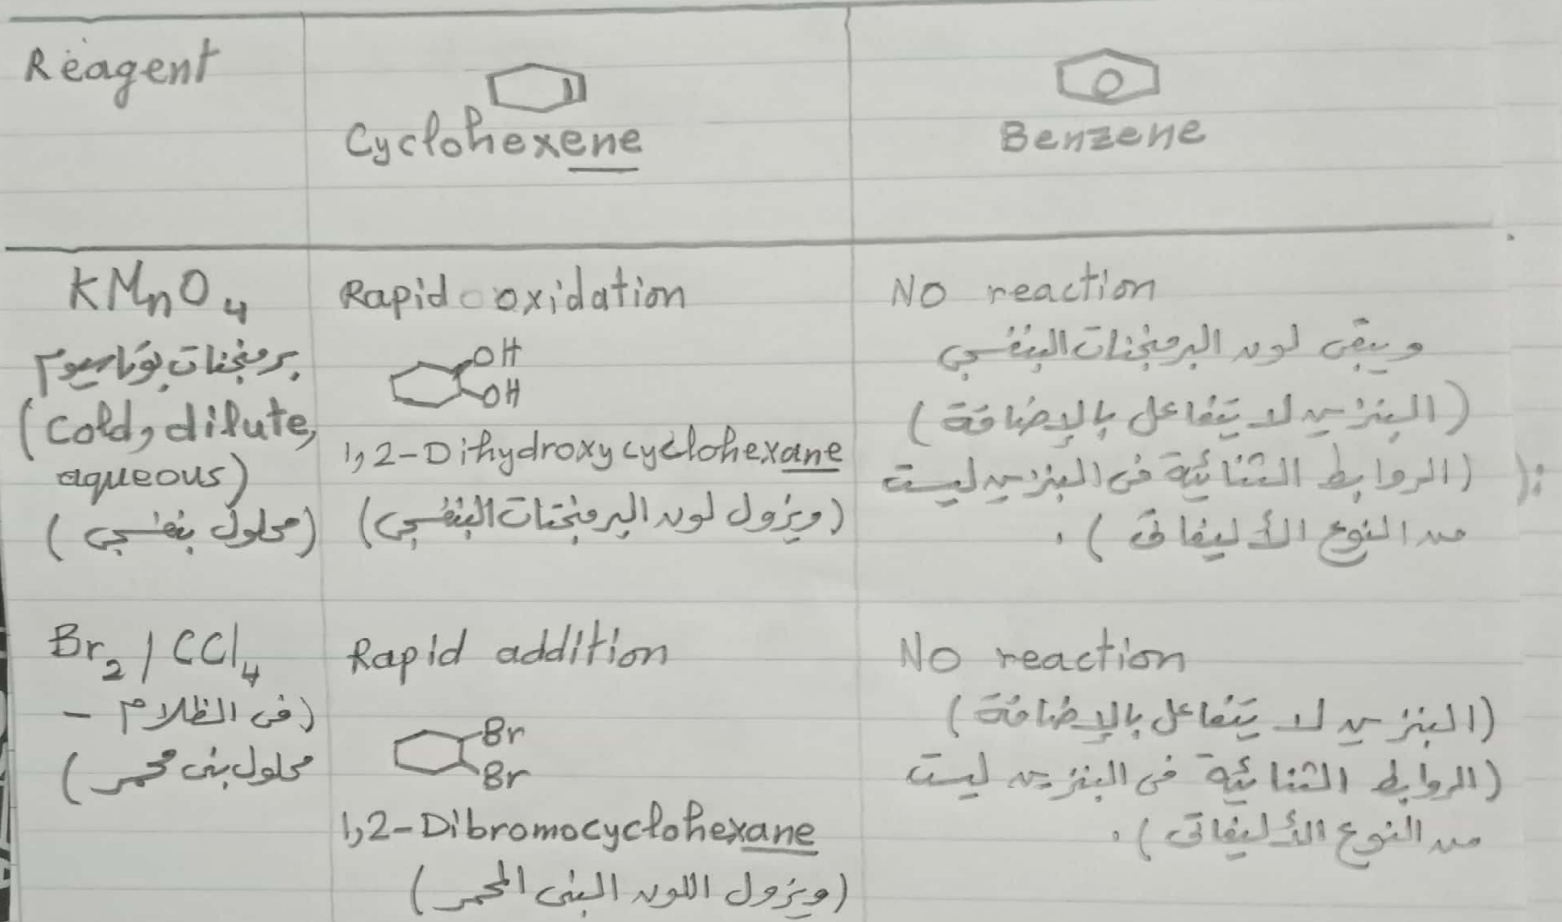 Reagent
Cyclohexene
Benzene
KMnO4
برمنجنات بوتاسيوم
(Cold, dilute,
aqueous)
(محلول بنفسجي)
Rapid oxidation
OH
OH
1,2-Dihydroxycyclohexane
(ويزول لون البرمنجنات البنفسجي)
No reaction
ويبقى لون البرمنجنات البنفسجي
(البنزين لا يتفاعل بالإضافة)
(الروابط الثنائية فى البنزين ليست
من النوع الأليفاتى).
Br2 / CCl4
(فى الظلام -
محلول بنى محمر)
Rapid addition
Br
Br
1,2-Dibromocyclohexane
(ويزول اللون البنى المحمر)
No reaction
(البنزين لا يتفاعل بالإضافة)
(الروابط الثنائية فى البنزين ليست
من النوع الأليفاتى).